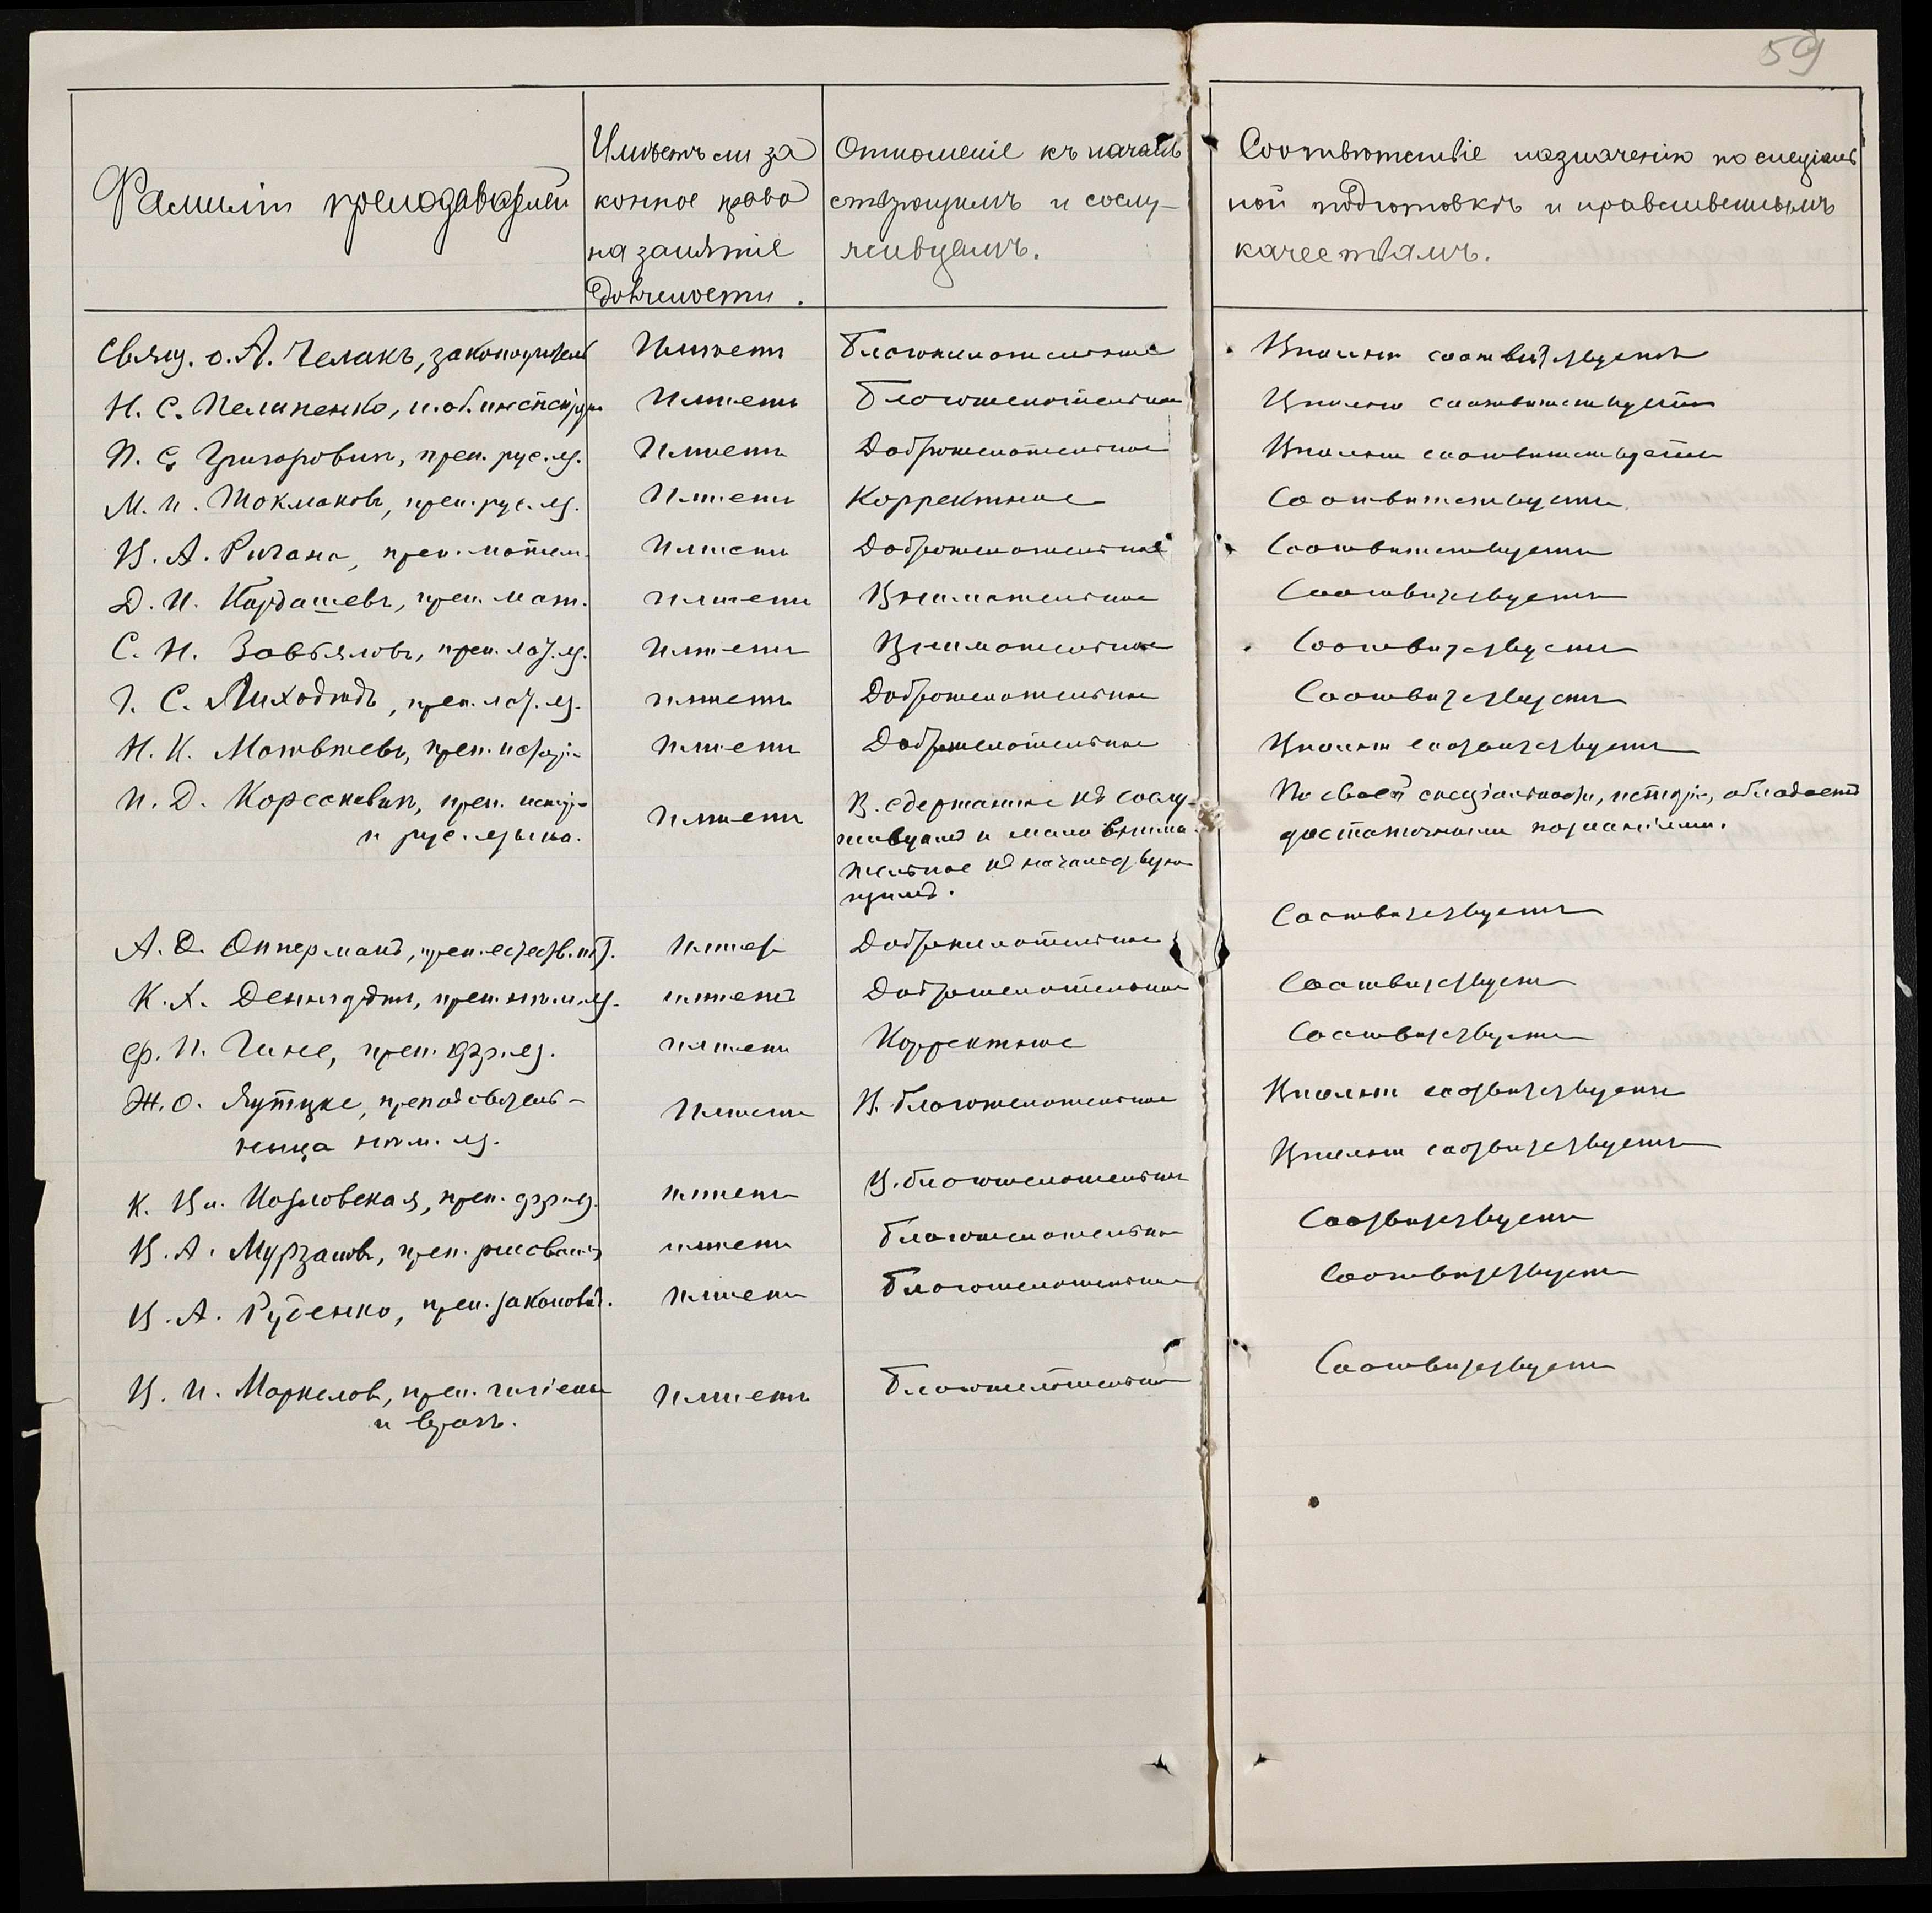 59
Фамиліи преподавателей
Имѣетъ ли за
конное право
на занятіе
должности.
Отношеніе къ началь
ствующимъ и сослу-
живцамъ.
Соотвѣтствіе назначенію по спеціаль
ной подготовкѣ и нравственнымъ
качествамъ.
Свящ. о. А. Челакъ, законоучитель Имѣетъ Благожелательное Вполнѣ соотвѣтствуетъ
Н. С. Пелипенко, и. об. инспектора Имѣетъ Благожелательное Вполнѣ соотвѣтствуетъ
П. С. Григоровичъ, преп. рус. яз. Имѣетъ Доброжелательное Вполнѣ соотвѣтствуетъ
М. И. Токмаковъ, преп. рус. яз. Имѣетъ Корректное Соотвѣтствуетъ
В. А. Ригана, преп. матем. Имѣетъ Доброжелательное Соотвѣтствуетъ
Д. И. Кардашевъ, преп. мат. Имѣетъ Внимательное Соотвѣтствуетъ
С. Н. Завьяловъ, преп. лат. яз. Имѣетъ Внимательное Соотвѣтствуетъ
С. Лиходѣдъ, преп. лат. яз. Имѣетъ Доброжелательное Соотвѣтствуетъ
Н. К. Матвѣевъ, преп. исторіи Имѣетъ Доброжелательное Вполнѣ соотвѣтствуетъ
П. Д. Корсакевичъ, преп. исторіи
и рус. языка.
Имѣетъ
В. сдержанное къ сослу-
живцамъ и мало внима-
тельное къ начальствую-
щимъ.
По своей спеціальности, исторіи, обладаетъ
достаточными познаніями.
А. Ѳ. Опперманъ, преп. естеств. ист. Имѣетъ Доброжелательное Соотвѣтствуетъ
К. Х. преп. нѣм. яз. имѣетъ Доброжелательное Соотвѣтствуетъ
Ф. П. Гине, преп. фр. яз. имѣетъ Корректное Соотвѣтствуетъ
Ж. О. Яутцке, преподаватель-
ница нѣм. яз.
Имѣетъ В. благожелательное Вполнѣ соотвѣтствуетъ
К. Ив. Козловская, преп. фр. яз. имѣетъ В. благожелательное Вполнѣ соотвѣтствуетъ
В. А. Мурзановъ, преп. рисованія имѣетъ Благожелательное Соотвѣтствуетъ
В. А. Руденко, преп. законовѣд. Имѣетъ Благожелательное Соотвѣтствуетъ
В. И. Маркелов, преп. гигіены
и врачъ.
Имѣетъ Благожелательное Соотвѣтствуетъ